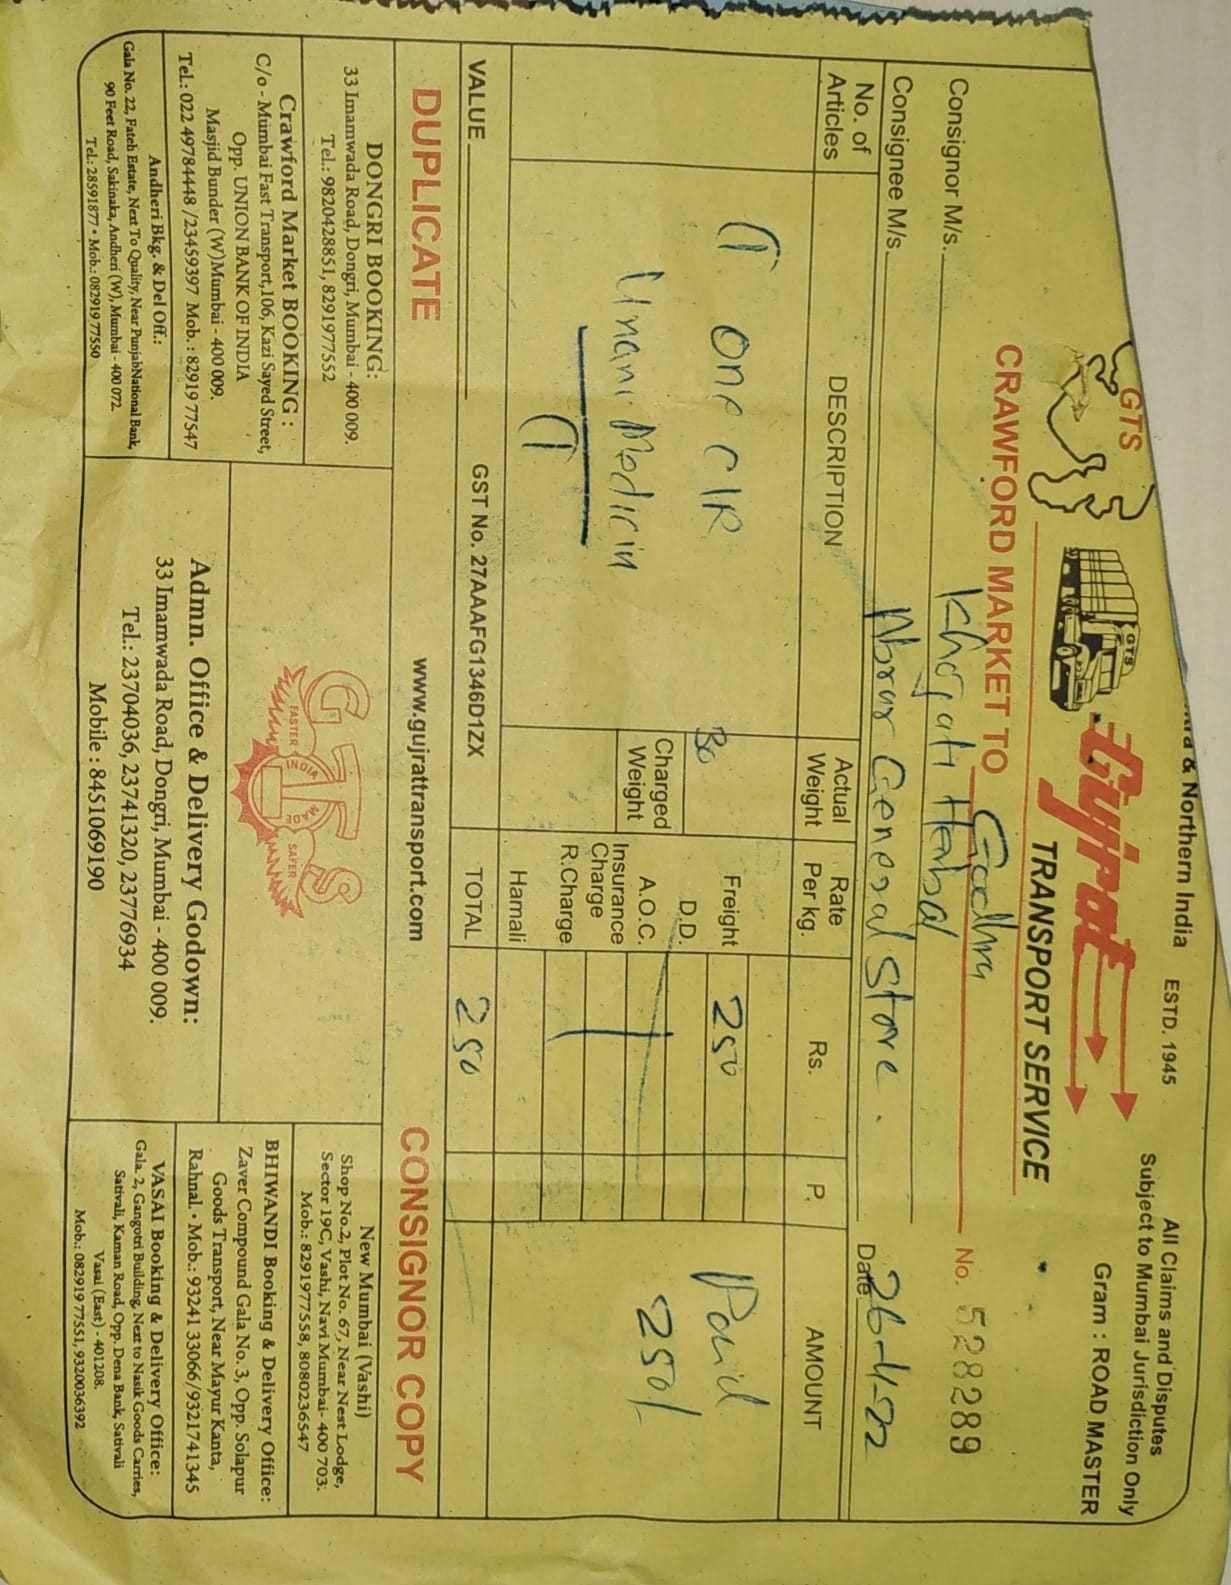 & Northern India ESTD. 1945
All Claims and Disputes
Subject to Mumbai Jurisdiction Only
Gram : ROAD MASTER
GTS
GTS
Gujrat
TRANSPORT SERVICE
CRAWFORD MARKET TO Godhra
No. 528289
Consignor M/s. Khojati Herbal
Consignee M/s. Abrar General Store.
Date 26-11-22
No. of Articles DESCRIPTION Actual Weight Rate Per kg. Rs. P. AMOUNT
(1 One C/R
Unani Medicin
(1
30
Charged Weight
Freight 250
D.D.
A.O.C.
Insurance Charge
R.Charge
Hamali
Paid
250/-
VALUE
GST No. 27AAAFG1346D1ZX
TOTAL 250
DUPLICATE
www.gujrattransport.com
CONSIGNOR COPY
DONGRI BOOKING:
33 Imamwada Road, Dongri, Mumbai - 400 009.
Tel.: 9820428851, 8291977552
Crawford Market BOOKING :
C/o - Mumbai Fast Transport,106, Kazi Sayed Street,
Opp. UNION BANK OF INDIA
Masjid Bunder (W)Mumbai - 400 009.
Tel.: 022 49784448 /23459397 Mob. : 82919 77547
Andheri Bkg. & Del Off.:
Gala No. 22, Fateh Estate, Next To Quality, Near PunjabNational Bank,
90 Feet Road, Sakinaka, Andheri (W), Mumbai - 400 072.
Tel.: 28591877 • Mob.: 082919 77550
GTS
FASTER
INDIA
SAFER
Admn. Office & Delivery Godown:
33 Imamwada Road, Dongri, Mumbai - 400 009.
Tel.: 23704036, 23741320, 23776934
Mobile : 8451069190
New Mumbai (Vashi)
Shop No.2, Plot No. 67, Near Nest Lodge,
Sector 19C, Vashi, Navi Mumbai- 400 703.
Mob.: 8291977558, 8080236547
BHIWANDI Booking & Delivery Office:
Zaver Compound Gala No. 3, Opp. Solapur
Goods Transport, Near Mayur Kanta,
Rahnal. • Mob.: 93241 33066/9321741345
VASAI Booking & Delivery Office:
Gala. 2, Gangotri Building, Next to Nasik Goods Carries,
Sativali, Kaman Road, Opp. Dena Bank, Sativali
Vasai (East) - 401208.
Mob.: 082919 77551, 9320036392